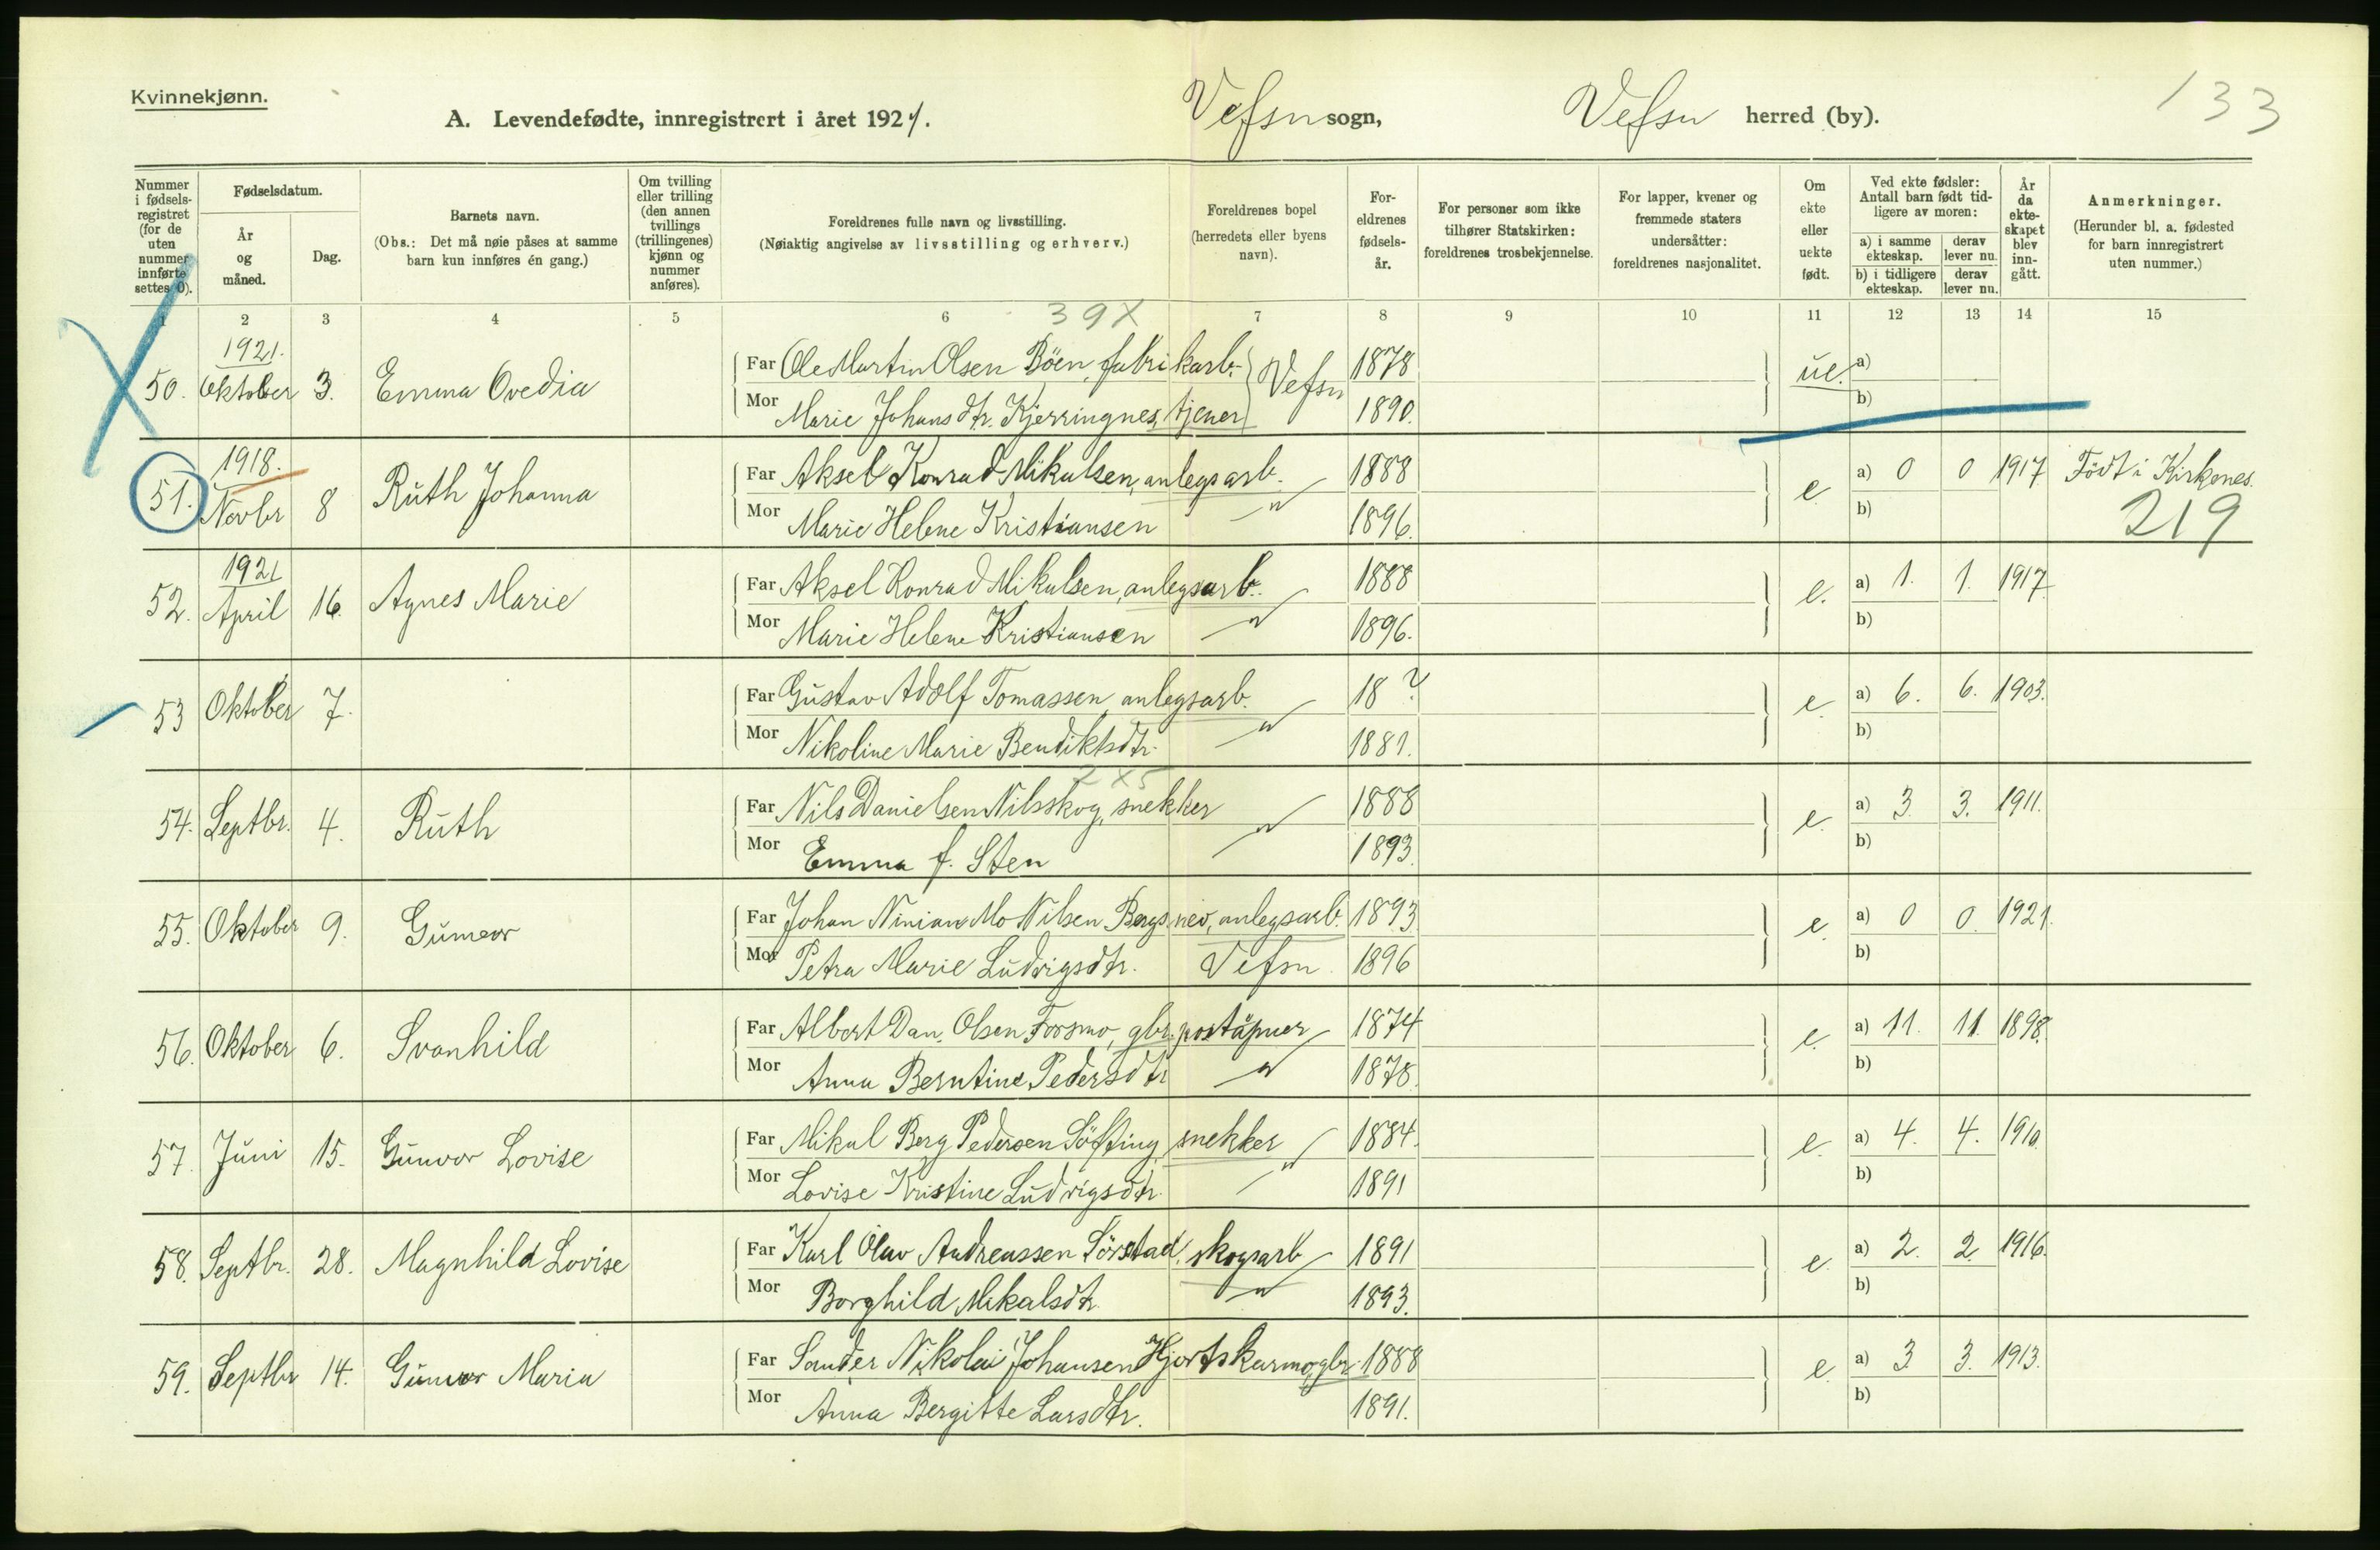 Kvinnekjønn.
A. Levendefødte, innregistrert i året 1921.
Vefsn sogn,
Vefsn herred (by).
133
Nummer i fødsels-registret (for de uten nummer innførte settes 0).
Fødselsdatum.
År og måned.
Dag.
Barnets navn.
(Obs.: Det må nøie påses at samme barn kun innføres én gang.)
Om tvilling eller trilling (den annen tvillings (trillingenes) kjønn og nummer anføres).
Foreldrenes fulle navn og livsstilling.
(Nøiaktig angivelse av livsstilling og erhverv.)
Foreldrenes bopel (herredets eller byens navn).
For-eldrenes fødsels-år.
For personer som ikke tilhører Statskirken: foreldrenes trosbekjennelse.
For lapper, kvener og fremmede staters undersåtter: foreldrenes nasjonalitet.
Om ekte eller uekte født.
Ved ekte fødsler: Antall barn født tid-ligere av moren:
a) i samme ekteskap.
derav lever nu.
b) i tidligere ekteskap.
derav lever nu.
År da ekte-skapet blev inn-gått.
Anmerkninger.
(Herunder bl. a. fødested for barn innregistrert uten nummer.)
1 2 3 4 5 6 7 8 9 10 11 12 13 14 15
39 X
1921.
50. Oktober 3. Emma Ovedia Far Ole Martin Olsen Böen, fabrikarb. Vefsn 1878 ue. a)
Mor Marie Johansdtr. Kjerringnes, tjener 1890. b)
1918.
51. Novbr 8 Ruth Johanna Far Aksel Konrad Mikalsen, anlegsarb. 1888 e. a) 0 0 1917 Födt i Kirkenes.
Mor Marie Helene Kristiansen " 1896. b) 219
1921
52. April 16. Agnes Marie Far Aksel Konrad Mikalsen, anlegsarb. 1888 e. a) 1. 1. 1917
Mor Marie Helene Kristiansen " 1896. b)
53 Oktober 7. Far Gustav Adolf Tomassen, anlegsarb. 18 ? e. a) 6. 6. 1903.
Mor Nikoline Marie Bendiktsdtr. " 1881. b)
2 X 5
54. Septbr. 4. Ruth Far Nils Danielsen Nilsskog, snekker 1888 e. a) 3 3. 1911.
Mor Emma f. Sten " 1893. b)
55. Oktober 9. Gunvor Far Johan Ninian Mo Nilsen Bergsnev, anlegsarb. 1893 e. a) 0 0. 1921.
Mor Petra Marie Ludvigsdtr. Vefsn. 1896 b)
56. Oktober 6. Svanhild Far Albert Dan. Olsen Forsmo, gbr. poståpner 1874 e. a) 11. 11. 1898.
Mor Anna Berntine Pedersdtr " 1878. b)
57. Juni 15. Gunvor Lovise Far Mikal Berg Pedersen Söfting, snekker 1884. e. a) 4. 4. 1910.
Mor Lovise Kristine Ludvigsdtr. " 1891 b)
58. Septbr. 28. Magnhild Lovise Far Karl Olav Andreassen Sörstad, skogsarb 1891 e. a) 2. 2. 1916.
Mor Borghild Mikalsdtr. " 1893. b)
59. Septbr 14. Gunvor Maria Far Sander Nikolai Johansen Hjortskarmo, gbr. 1888 e. a) 3 3. 1913.
Mor Anna Bergitte Larsdtr. 1891. b)